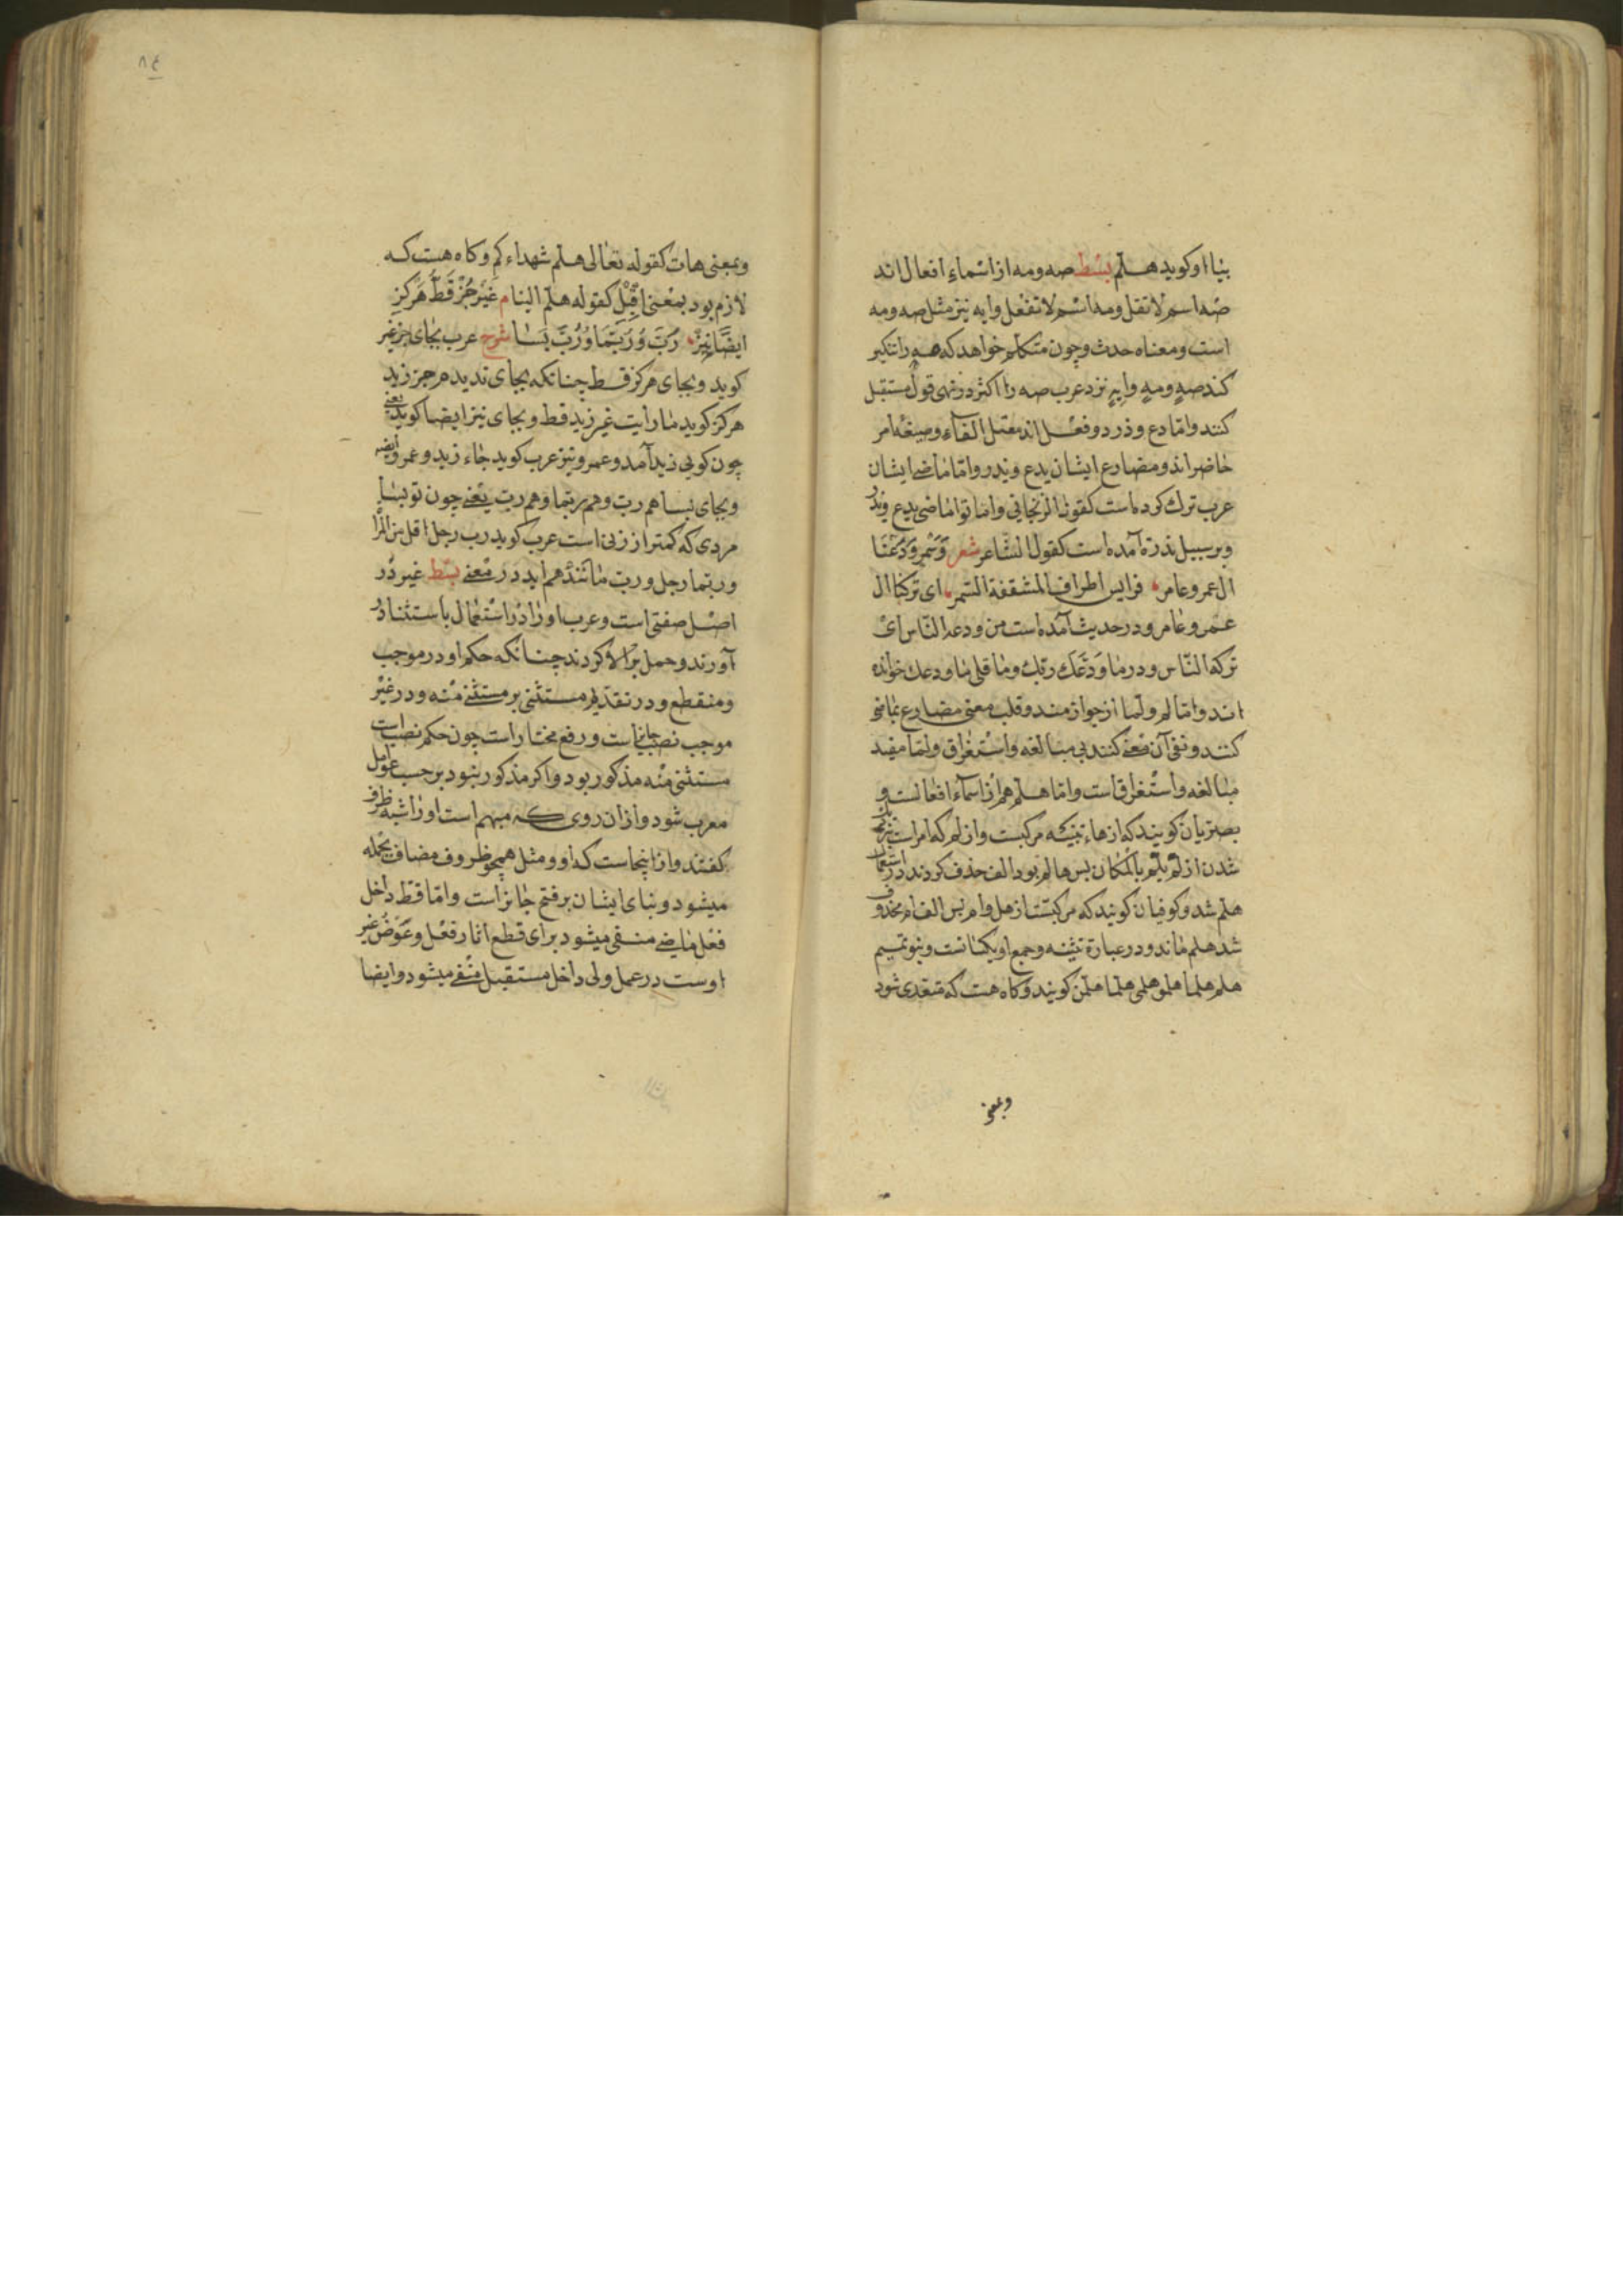 بیااو کوید هلم بسط صه ومه از اسماء افعال اند
صه اسم لا تقل ومه اسم لا تفعل وایه نیز مثل صه ومه
است ومعناه حدث وچون متکلم خواهد که صه را تنکیر
کند صهٍ ومهٍ وایهٍ نزد عرب صه را اکثر در نهی قول مستقبل
کنند واما دع وذر دو فعل اند معتل الفاء وصیغه امر
حاضراند ومضارع ایشان یدع ویذر واما ماضی ایشان
عرب ترک کرده است کقول الزنجانی واماتوا ماضی یدع ویذر
وبر سبیل ندرة آمده است کقول الشاعر شعر وثم ودعنا
ال عمرو عامر فرایس اطراف المثقفة السمر ای ترکنا ال
عمرو عامر ودر حدیث آمده است من ودعه الناس ای
ترکه الناس ودر ما ودعک ربک وما قلی ما ودعک خوانده
اند واما لم ولما از جوازمند وقلب معنی مضارع بماضی
کنند ونفی آن معنی کنند بی مبالغه واستغراق ولما مفید
مبالغه واستغراق است واما هلم هم از اسماء افعالست و
بصریان کویند که از هاء تنبیه مرکبست واز لم که امر است
شدن از لم یلم بالمکان پس هالم بود الف حذف کردند در استعمال
هلم شد وکوفیان کویند که مرکبست از هل وام پس الف ام محذوف
شد هلم ماند ودر عبارة تثنیه وجمع او یکسانست وبنو تمیم
هلم هلما هلمو هلمی هلما هلمن کویند وکاه هست که متعدی شود
وبمعنی
٨٤
وبمعنی هات کقوله تعالی هلم شهداءکم وکاه هست که
لازم بود بمعنی اقبل کقوله هلم الینا م غیر جز قط هرکز
ایضا نیز رب وربتما ورب بسا شرح عرب بجای جز غیر
کوید وبجای هرکز قط چنانکه بجای ندیدم جز زید
هرکز کوید ما رایت غیر زید قط وبجای نیز ایضا کوید یعنی
چون کویی زید آمد وعمرو نیز عرب کوید جاء زید وعمرو ایضا
وبجای بسا هم رب وهم ربتما وهم ربت یعنی چون تو بسا
مردی که کمتر از زنی است عرب کوید رب رجل اقل من المرأ
وربتما رجل وربت مانند هم اید در معنی بسط غیر در
اصل صفتی است وعرب اورا در استعمال باستثنا در
آورند وحمل بر الا کردند چنانکه حکم او در موجب
ومنقطع ودر تقدیم مستثنی بر مستثنی منه ودر غیر
موجب نصب جایز است ورفع مختار است چون حکم نصب است
مستثنی منه مذکور بود واکر مذکور نبود بر حسب عوامل
معرب شود واز ان روی که مبهم است اورا شبه ظرف
کفتند واز اینجاست که او ومثل همچو ظروف مضاف بجمله
میشود وبنای ایشان بر فتح جایز است واما قط داخل
فعل ماضی منفی میشود برای قطع اثار فعل وعوض غیر
اوست در عمل ولی داخل مستقبل منفی میشود وایضا